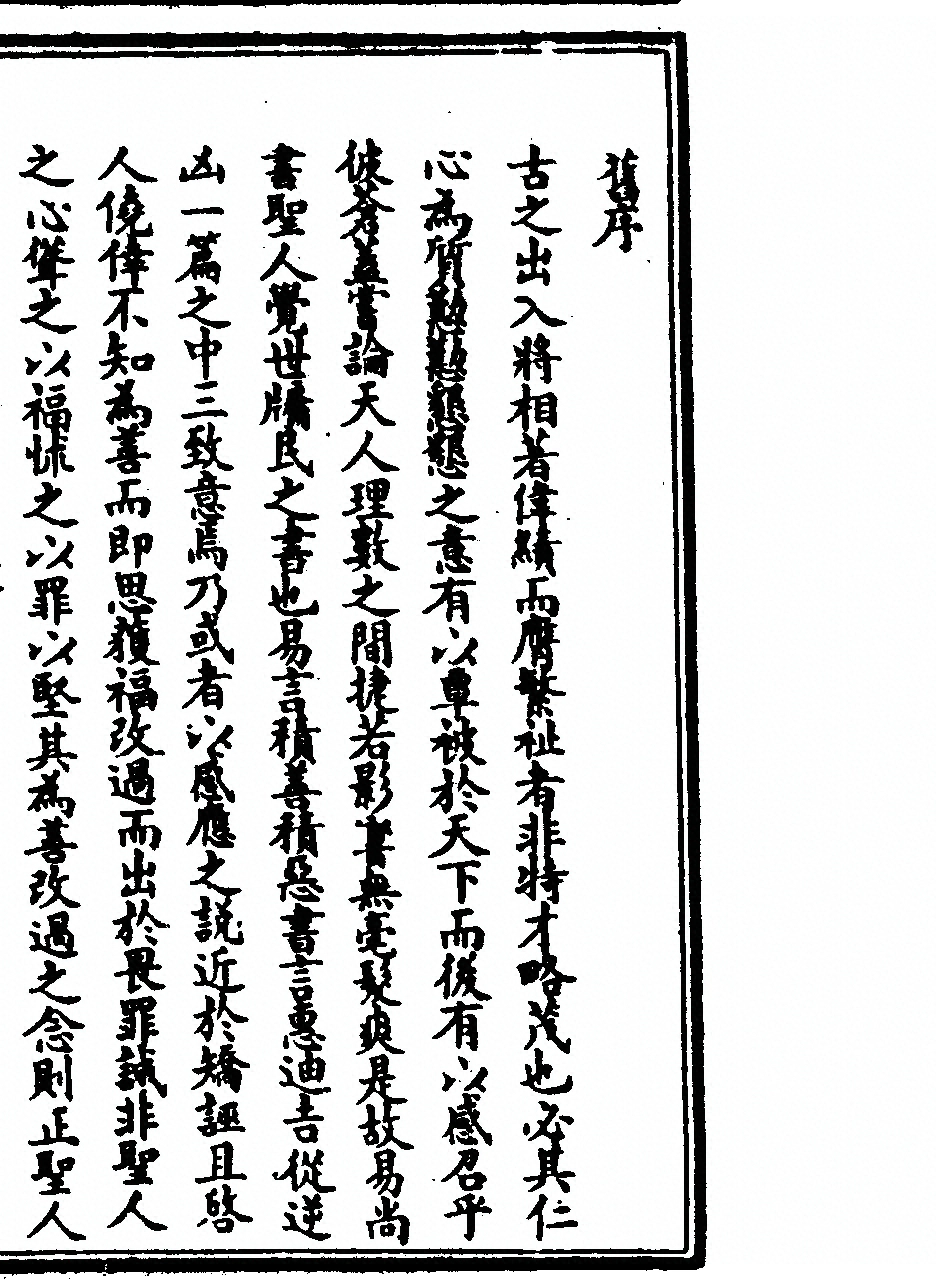 舊序
古之出入將相著偉績而膺繁祉者非特才略茂也必其仁
心為質懃懃懇懇之意有以覃被於天下而後有以感召乎
彼蒼蓋嘗論天人理數之間捷若影響無毫髮爽是故易尚
書聖人覺世牖民之書也易言積善積惡書言惠迪吉從逆
凶一篇之中三致意焉乃或者以感應之説近於矯誣且啓
人僥倖不知為善而即思獲福改過而出於畏罪誠非聖人
之心聳之以福怵之以罪以堅其為善改過之念則正聖人